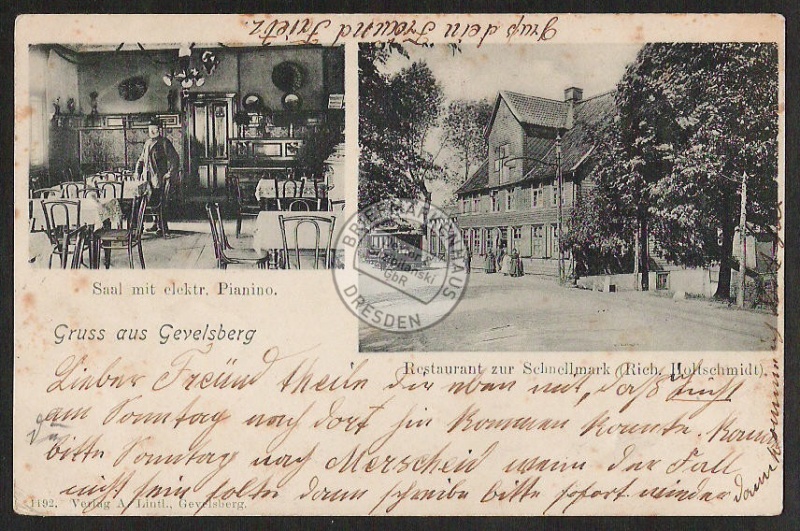 Grup dein Freünd Frietz.
Saal mit elektr. Pianino.
Gruss aus Gevelsberg
Restaurant zur Schnellmark (Rich. Holtschmidt).
BRIEFMARKENHAUS
GbR
DRESDEN
Lieber Freünd theile dir eben mit, daß
am Sonntag nach dort hin kommen konnte. Kann
bitte Sonntag nach Merscheid wenn der Fall
nicht sein solte dann schreibe bitte sofort wieder
dann
1192. Verlag A. Lintl., Gevelsberg.